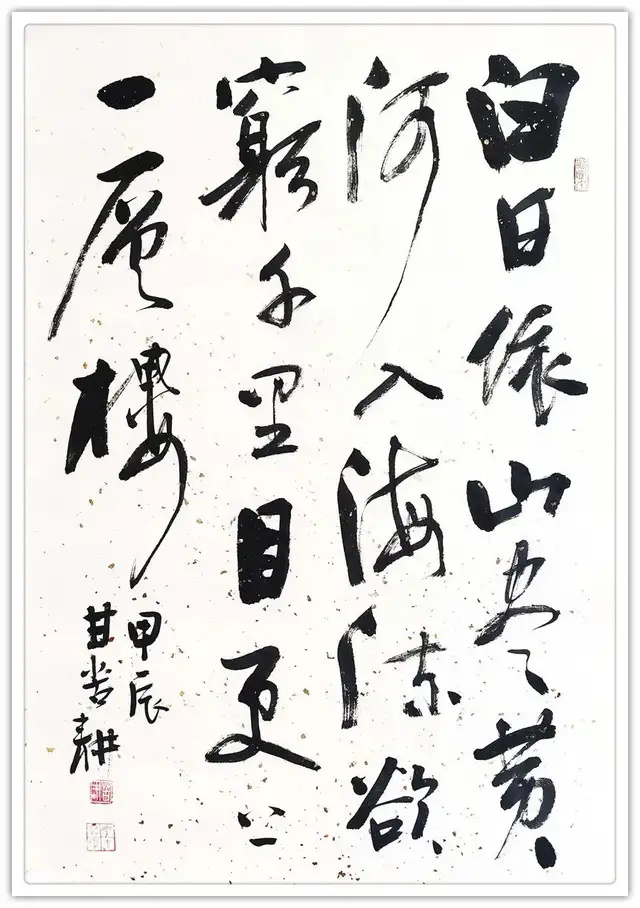 白日依山尽黄
河入海流欲
窮千里目更上
一层樓
甲辰
甘苦耕